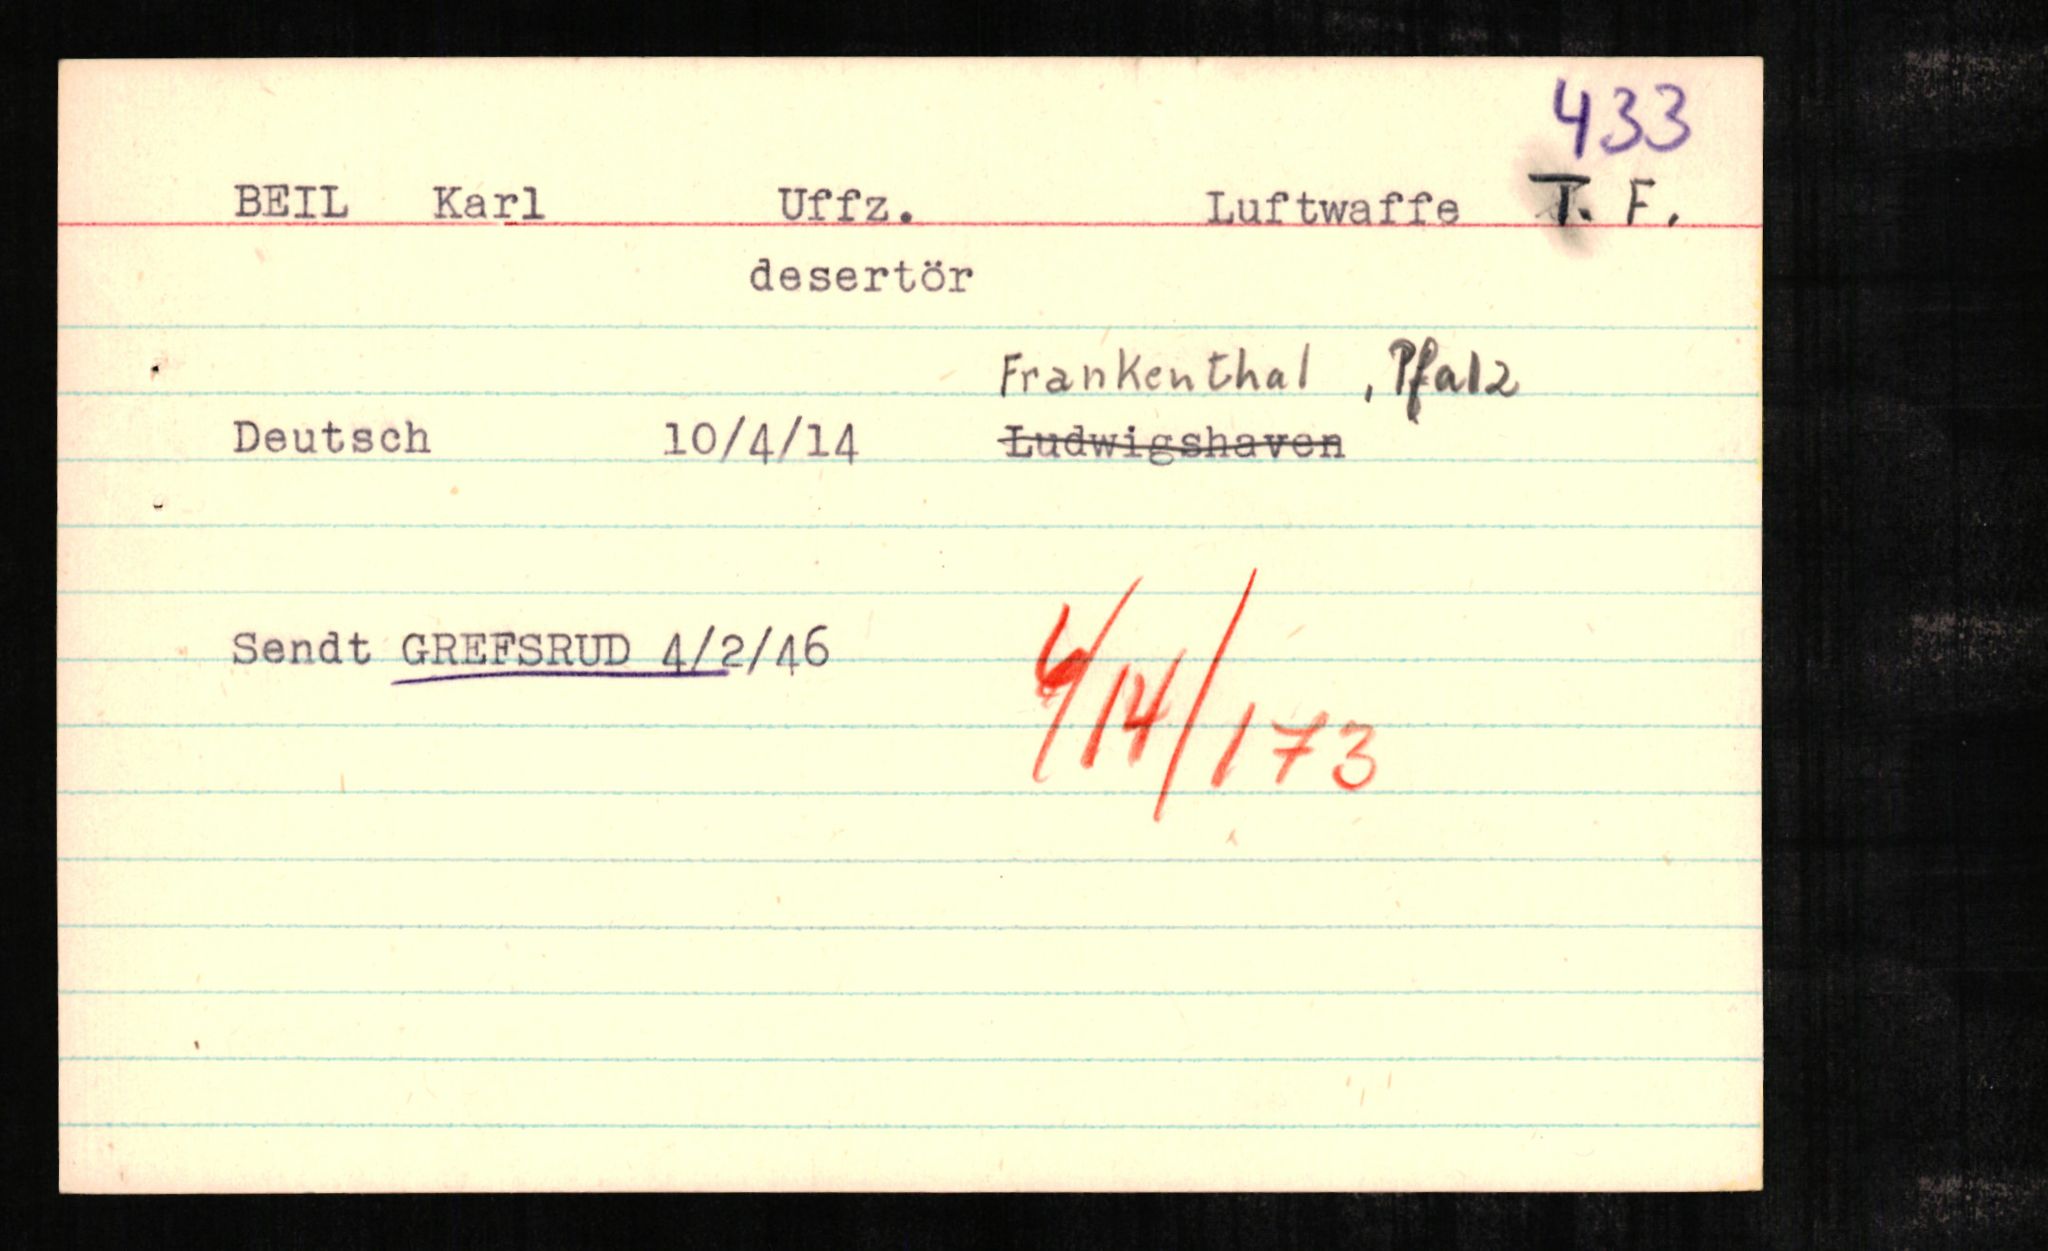 433
BEIL Karl Uffz. Luftwaffe T. F.
desertör
Frankenthal , Pfalz
Deutsch 10/4/14 Ludwigshaven
Sendt GREFSRUD 4/2/46
/14/173